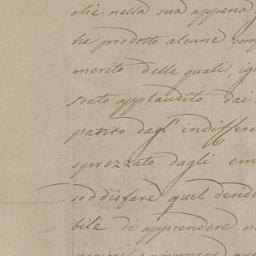 chè nella sua appena
ha prodotto alcune
merito delle quali, ig
stato applaudito dai
patito dagl' indiffere
sprezzato dagli em
soddisfare quel deside
bile di apprendere n